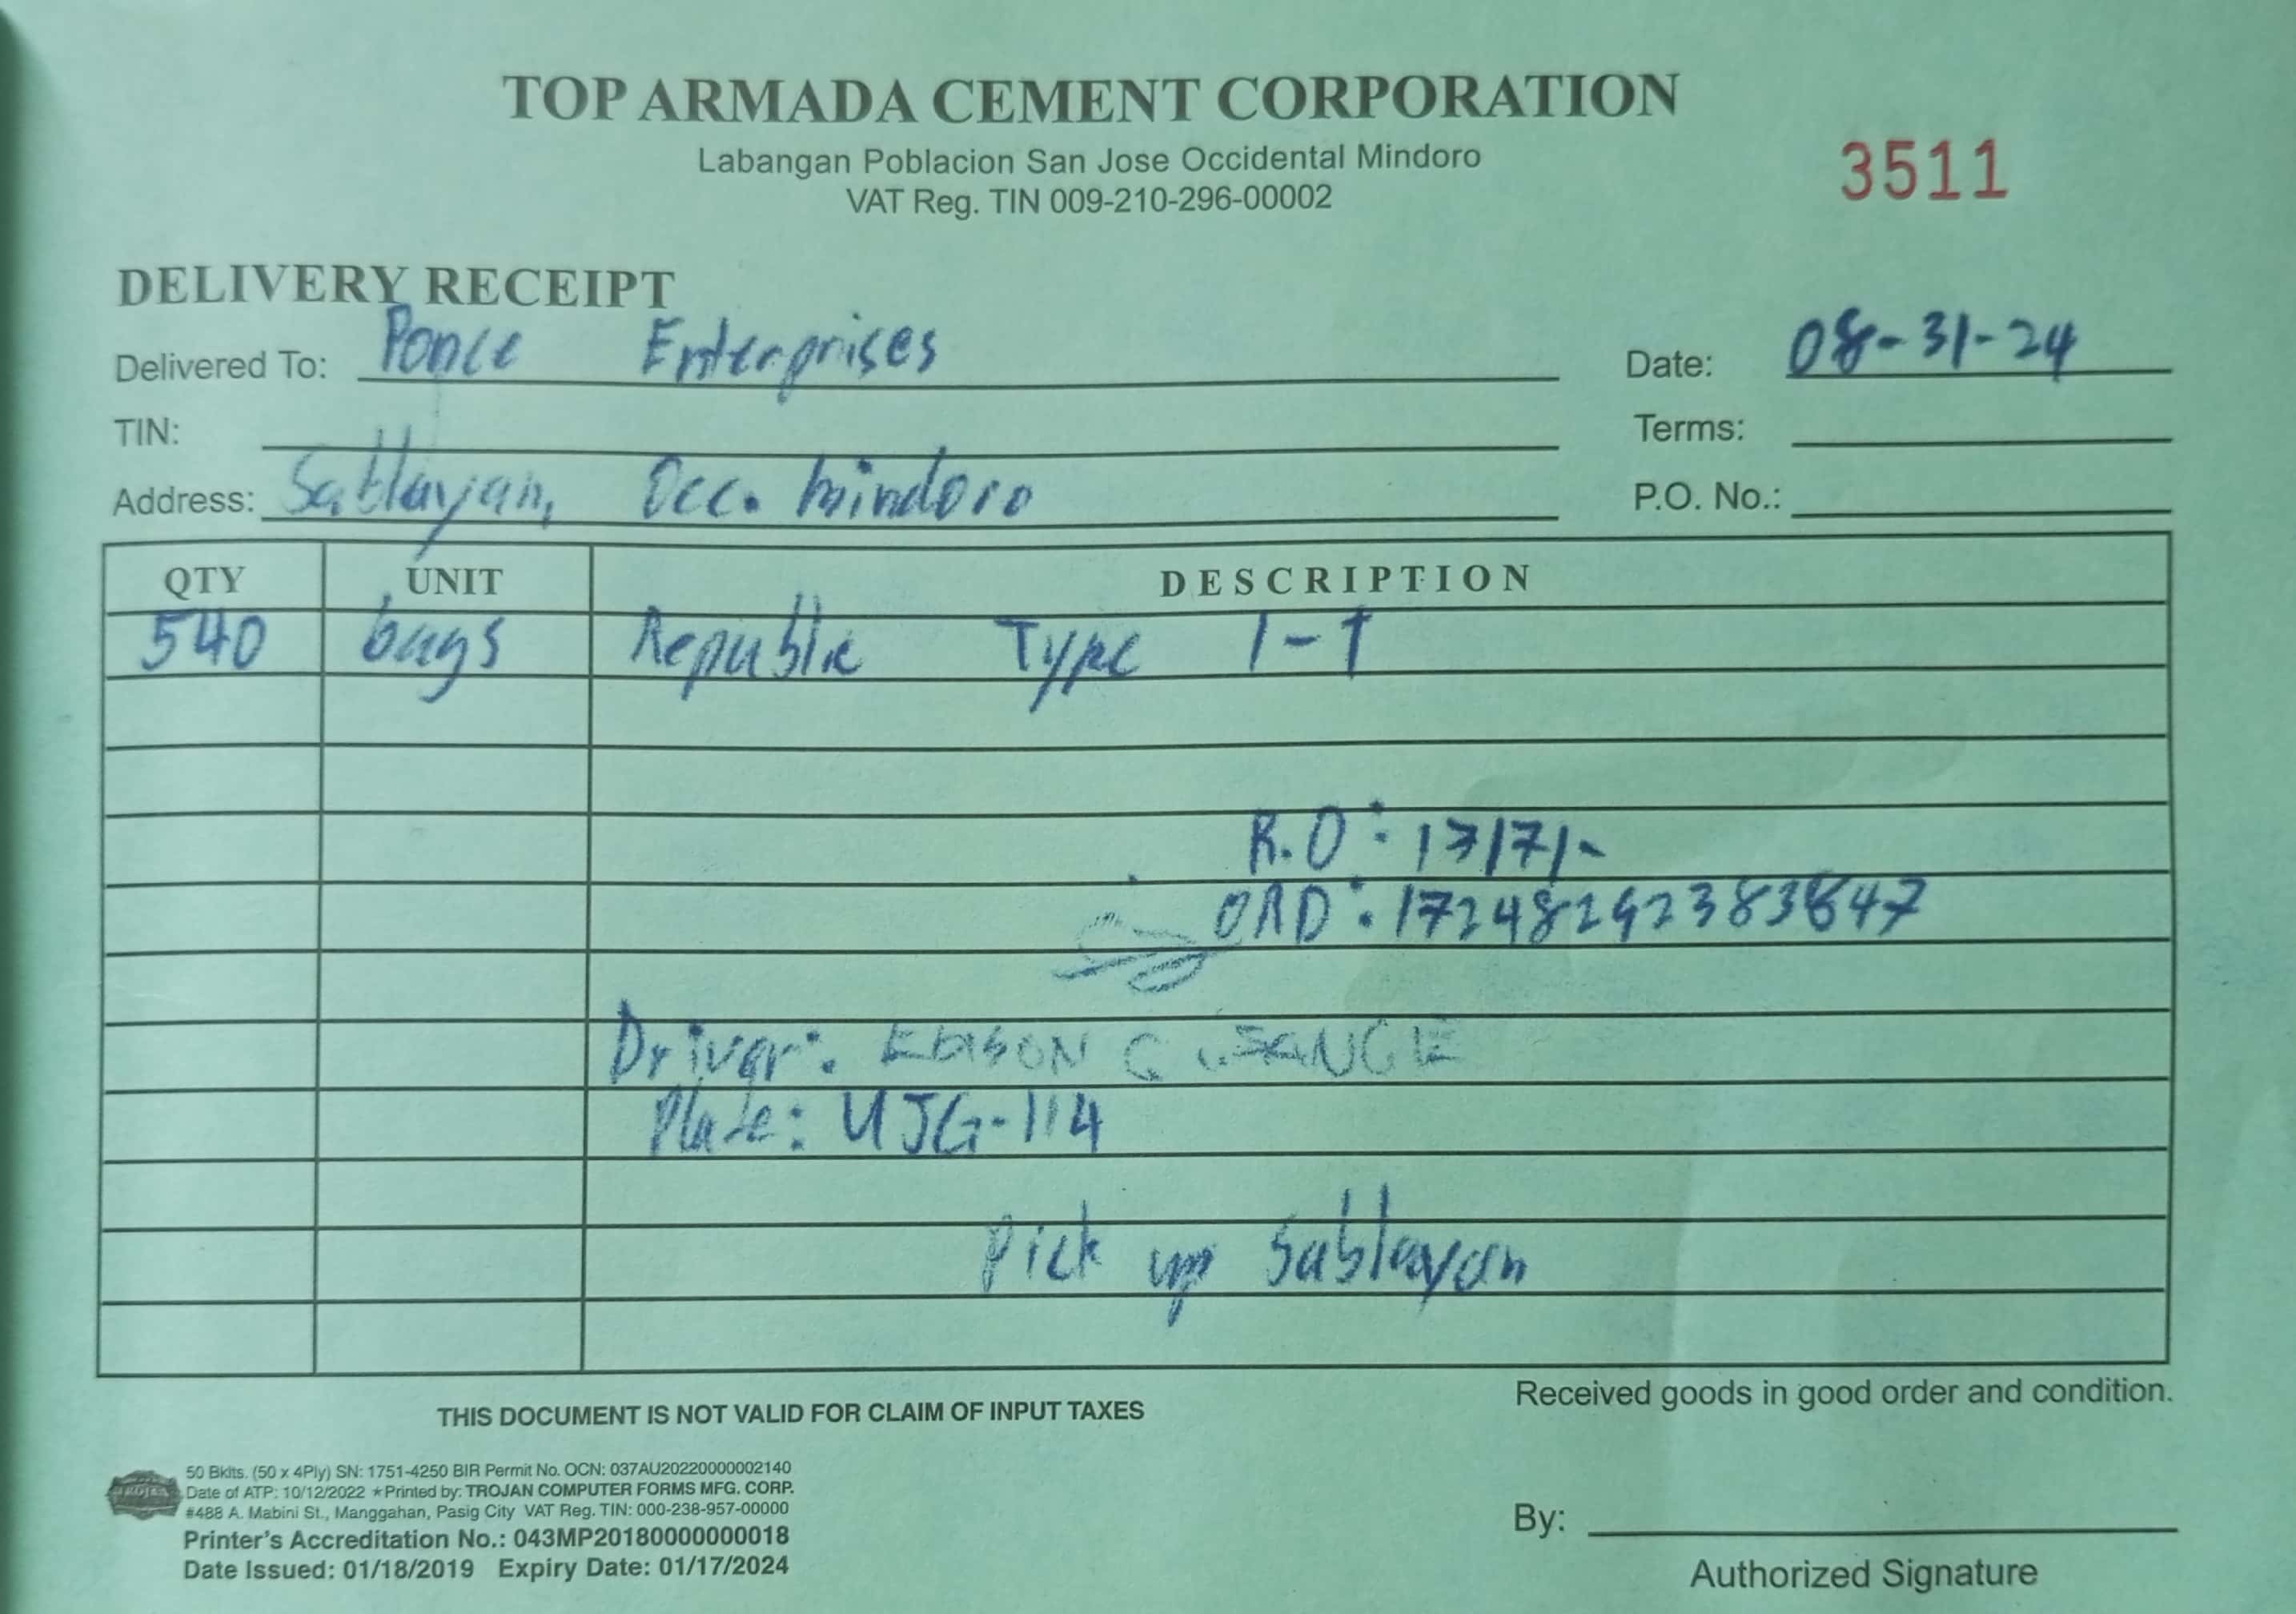 TOP ARMADA CEMENT CORPORATION
Labangan Poblacion San Jose Occidental Mindoro
VAT Reg. TIN 009-210-296-00002
3511
DELIVERY RECEIPT
Delivered To: Ponce Enterprises Date: 08-31-24
TIN: Terms:
Address: Sablayan, Occ. Mindoro P.O. No.:
QTY UNIT DESCRIPTION
540 bags Republic Type 1-T
R.O: 17171-
ORD: 17248292383847
Driver: EDISON
Plate: UJG-114
Pick up Sablayan
THIS DOCUMENT IS NOT VALID FOR CLAIM OF INPUT TAXES
Received goods in good order and condition.
50 Bklts. (50 x 4Ply) SN: 1751-4250 BIR Permit No. OCN: 037AU20220000002140
Date of ATP: 10/12/2022 ★ Printed by: TROJAN COMPUTER FORMS MFG. CORP.
#488 A. Mabini St., Manggahan, Pasig City VAT Reg. TIN: 000-238-957-00000
Printer's Accreditation No.: 043MP20180000000018
Date Issued: 01/18/2019 Expiry Date: 01/17/2024
By:
Authorized Signature